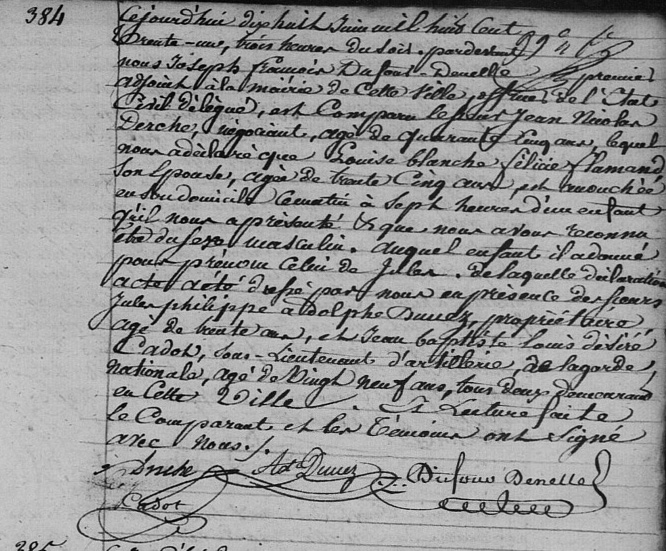 384
Cejourd'hui dix huit Juin mil huit Cent
Trente-un, trois heures du soir pardevant
nous Joseph François Dufour-Denelle premier
adjoint à la mairie de Cette Ville, officier de l'Etat
Civil délégué, est Comparu le sieur Jean Nicolas
Derche, négociant, agé de quarante Cinq ans, lequel
nous a déclaré que Louise blanche félicie flamand
Son Epouse, agée de trente Cinq ans, est accouchée
en son domicile Cematin à sept heures d'un enfant
qu'il nous a présenté & que nous avons reconnu
être du sexe masculin. auquel enfant il a donné
pour prénom Celui de Jules. de laquelle déclaration
acte a été dressé par nous en présence des sieurs
Jules philippe adolphe Duuez, propriétaire,
agé de trente ans, et Jean baptiste Louis désiré
Cadot, Sous-Lieutenant d'artillerie, de la garde
nationale, agé de Vingt neuf ans, tous deux demeurant
en Cette Ville. Et Lecture faite
le Comparant et les Témoins ont Signé
avec Nous./.
Derche Ad. Duuez Dufour Denelle
Cadot
385